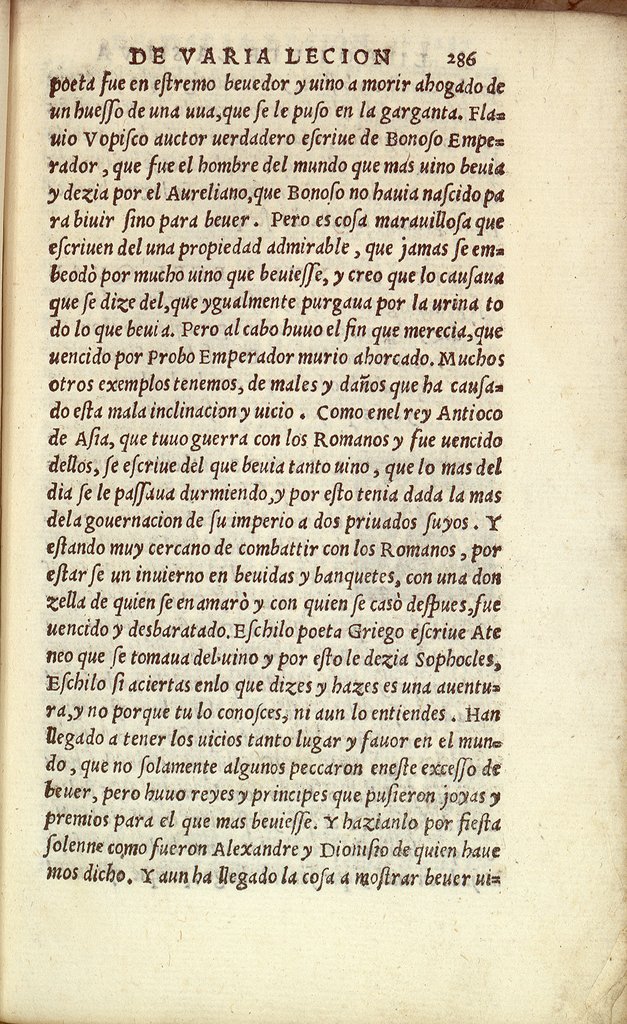 DE VARIA LECION 286
poeta fue en eſtremo beuedor y uino a morir ahogado de
un hueſſo de una uua, que ſe le puſo en la garganta. Fla=
uio Vopiſco auctor uerdadero eſcriue de Bonoſo Empe=
rador, que fue el hombre del mundo que mas uino beuia
y dezia por el Aureliano, que Bonoſo no hauia naſcido pa
ra biuir ſino para beuer. Pero es coſa marauilloſa que
eſcriuen del una propiedad admirable, que jamas ſe em=
beodò por mucho uino que beuieſſe, y creo que lo cauſaua
que ſe dize del, que ygualmente purgaua por la urina to
do lo que beuia. Pero al cabo huuo el fin que merecia, que
uencido por Probo Emperador murio ahorcado. Muchos
otros exemplos tenemos, de males y daños que ha cauſa=
do eſta mala inclinacion y uicio. Como enel rey Antioco
de Aſia, que tuuo guerra con los Romanos y fue uencido
dellos, ſe eſcriue del que beuia tanto uino, que lo mas del
dia ſe le paſſaua durmiendo, y por eſto tenia dada la mas
dela gouernacion de ſu imperio a dos priuados ſuyos. Y
eſtando muy cercano de combattir con los Romanos, por
eſtar ſe un inuierno en beuidas y banquetes, con una don
zella de quien ſe enamarò y con quien ſe casò deſpues, fue
uencido y desbaratado. Eſchilo poeta Griego eſcriue Ate
neo que ſe tomaua del uino y por eſto le dezia Sophocles,
Eſchilo ſi aciertas enlo que dizes y hazes es una auentu=
ra, y no porque tu lo conoſces, ni aun lo entiendes. Han
llegado a tener los uicios tanto lugar y fauor en el mun=
do, que no ſolamente algunos peccaron eneſte exceſſo de
beuer, pero huuo reyes y principes que puſieron joyas y
premios para el que mas beuieſſe. Y hazianlo por fieſta
ſolenne como fueron Alexandre y Dioniſio de quien haue
mos dicho. Y aun ha llegado la coſa a moſtrar beuer ui=